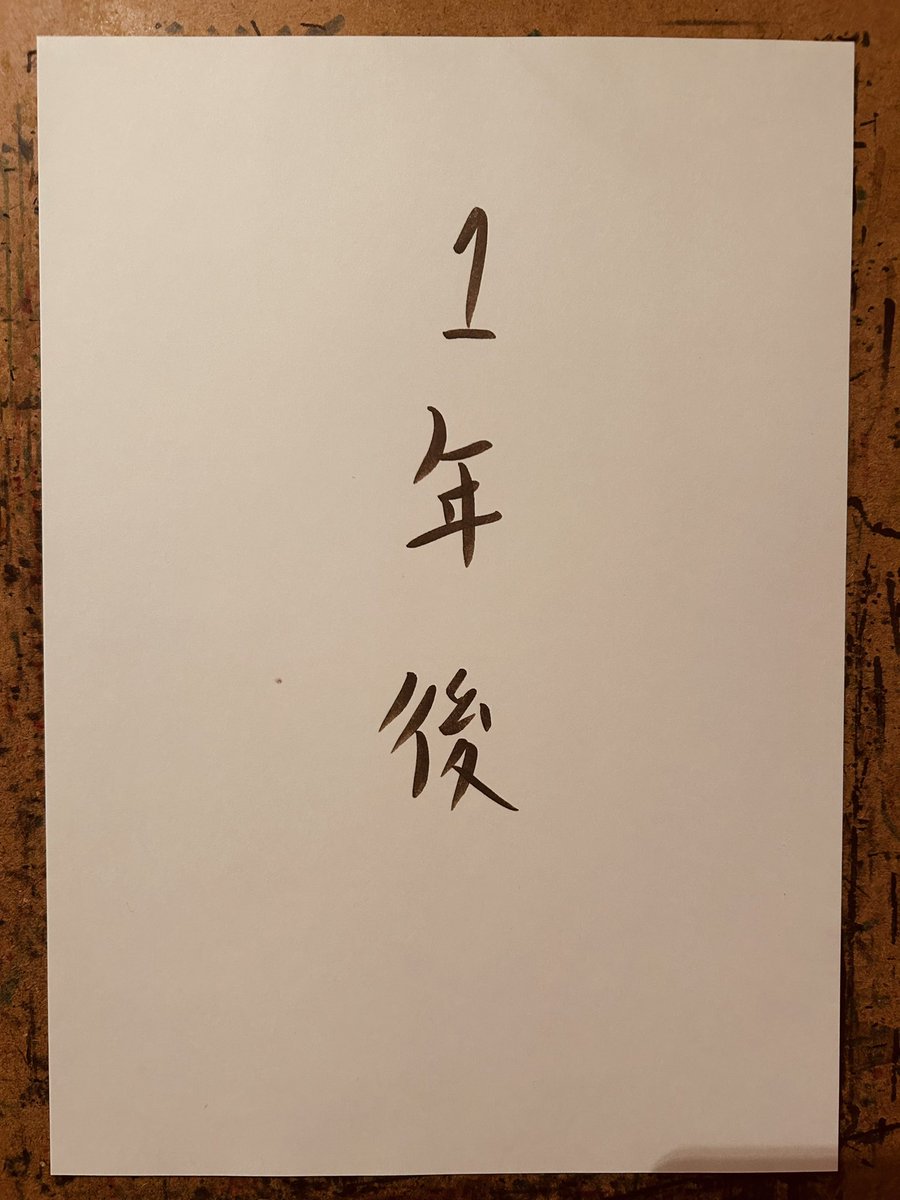 1年後